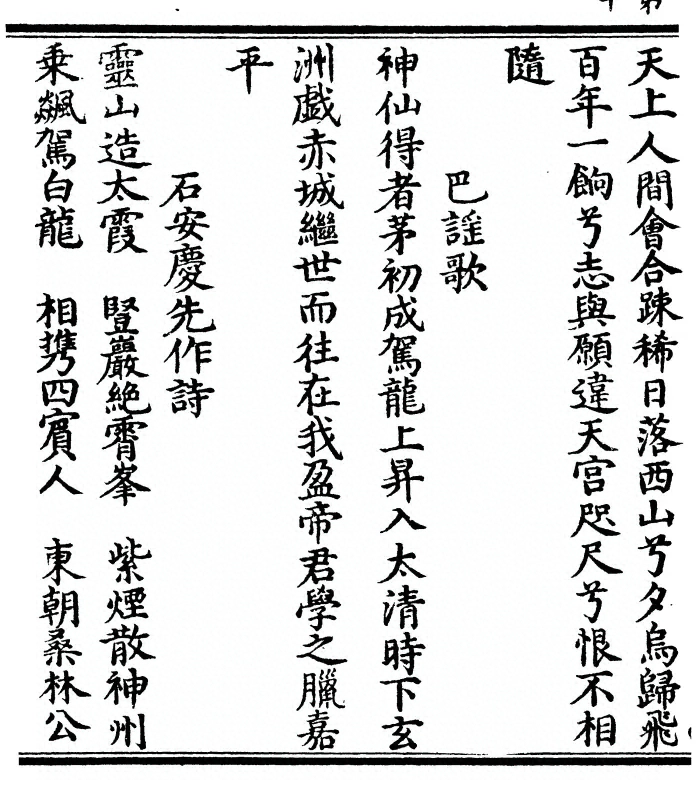 天上人間會合踈稀日落西山兮夕烏歸飛
百年一餉兮志與願違天宫咫尺兮恨不相
隨
巴謡歌
神仙得者茅初成駕龍上昇入太清時下玄
洲戯赤城繼世而往在我盈帝君學之臘嘉
平
石安慶先作詩
靈山造太霞　豎巖絶霄峯　紫煙散神州
乗飊駕白龍　相携四賔人　東朝桑林公